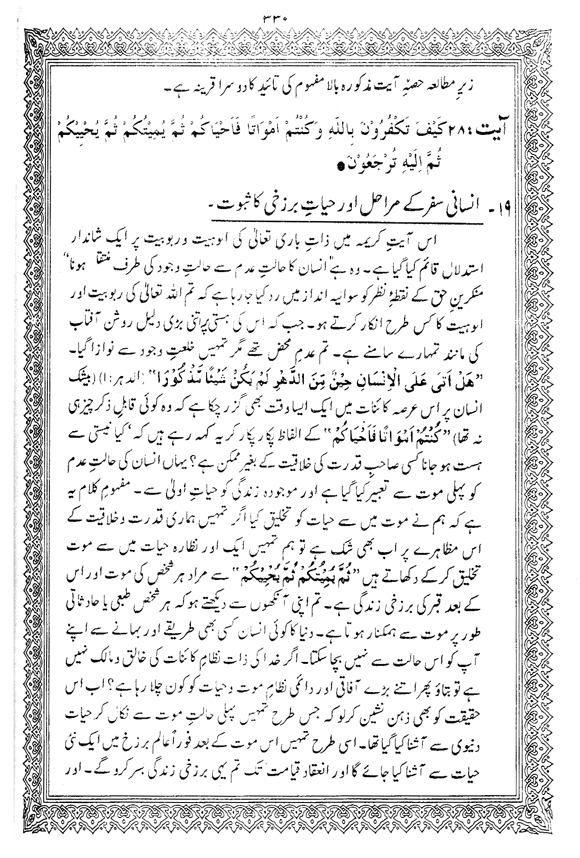 ۳۳۰
زیرِ مطالعہ حصۂ آیت مذکورہ بالا مفہوم کی تائید کا دوسرا قرینہ ہے۔
آیت:۲۸ كَيْفَ تَكْفُرُوْنَ بِاللّٰهِ وَكُنْتُمْ اَمْوَاتًا فَاَحْيَاكُمْ ثُمَّ يُمِيْتُكُمْ ثُمَّ يُحْيِيْكُمْ
ثُمَّ اِلَيْهِ تُرْجَعُوْنَ●
۱۹۔ انسانی سفر کے مراحل اور حیاتِ برزخی کا ثبوت۔
اس آیتِ کریمہ میں ذاتِ باری تعالٰی کی الوہیت و ربوبیت پر ایک شاندار
استدلال قائم کیا گیا ہے۔ وہ ہے "انسان کا حالتِ عدم سے حالتِ وجود کی طرف منتقل ہونا"
منکرینِ حق کے نقطۂ نظر کو سوالیہ انداز میں رد کیا جا رہا ہے کہ تم اللہ تعالٰی کی ربوبیت اور
الوہیت کا کس طرح انکار کرتے ہو۔ جب کہ اس کی ہستی پر اتنی بڑی دلیل روشن آفتاب
کی مانند تمہارے سامنے ہے۔ تم عدمِ محض تھے مگر تمہیں خلعتِ وجود سے نوازا گیا۔
"هَلْ اَتٰى عَلَى الْاِنْسَانِ حِيْنٌ مِّنَ الدَّهْرِ لَمْ يَكُنْ شَيْئًا مَّذْكُوْرًا" (الدہر:۱) (بیشک
انسان پر اس عرصہ کائنات میں ایک ایسا وقت بھی گزر چکا ہے کہ وہ کوئی قابلِ ذکر چیز ہی
نہ تھا) "كُنْتُمْ اَمْوَاتًا فَاَحْيَاكُمْ" کے الفاظ پکار پکار کر یہ کہہ رہے ہیں کہ 'کیا نیستی سے
ہست ہو جانا کسی صاحبِ قدرت کی خلاقیت کے بغیر ممکن ہے؟ یہاں انسان کی حالتِ عدم
کو پہلی موت سے تعبیر کیا گیا ہے اور موجودہ زندگی کو حیاتِ اولٰی سے۔ مفہومِ کلام یہ
ہے کہ ہم نے موت میں سے حیات کو تخلیق کیا اگر تمہیں ہماری قدرت و خلاقیت کے
اس مظاہرے پر اب بھی شک ہے تو ہم تمہیں ایک اور نظارہ حیات میں سے موت
تخلیق کر کے دکھاتے ہیں "ثُمَّ يُمِيْتُكُمْ ثُمَّ يُحْيِيْكُمْ" سے مراد ہر شخص کی موت اور اس
کے بعد قبر کی برزخی زندگی ہے۔ تم اپنی آنکھوں سے دیکھتے ہو کہ ہر شخص طبعی یا حادثاتی
طور پر موت سے ہمکنار ہوتا ہے۔ دنیا کا کوئی انسان کسی بھی طریقے اور بہانے سے اپنے
آپ کو اس حالت سے نہیں بچا سکتا۔ اگر خدا کی ذات نظامِ کائنات کی خالق و مالک نہیں
ہے تو بتاؤ پھر اتنے بڑے آفاقی اور دائمی نظامِ موت و حیات کو کون چلا رہا ہے؟ اب اس
حقیقت کو بھی ذہن نشین کر لو کہ جس طرح تمہیں پہلی حالتِ موت سے نکال کر حیات
دنیوی سے آشنا کیا گیا تھا۔ اسی طرح تمہیں اس موت کے بعد فوراً عالمِ برزخ میں ایک نئی
حیات سے آشنا کیا جائے گا اور انعقادِ قیامت تک تم یہی برزخی زندگی بسر کرو گے۔ اور